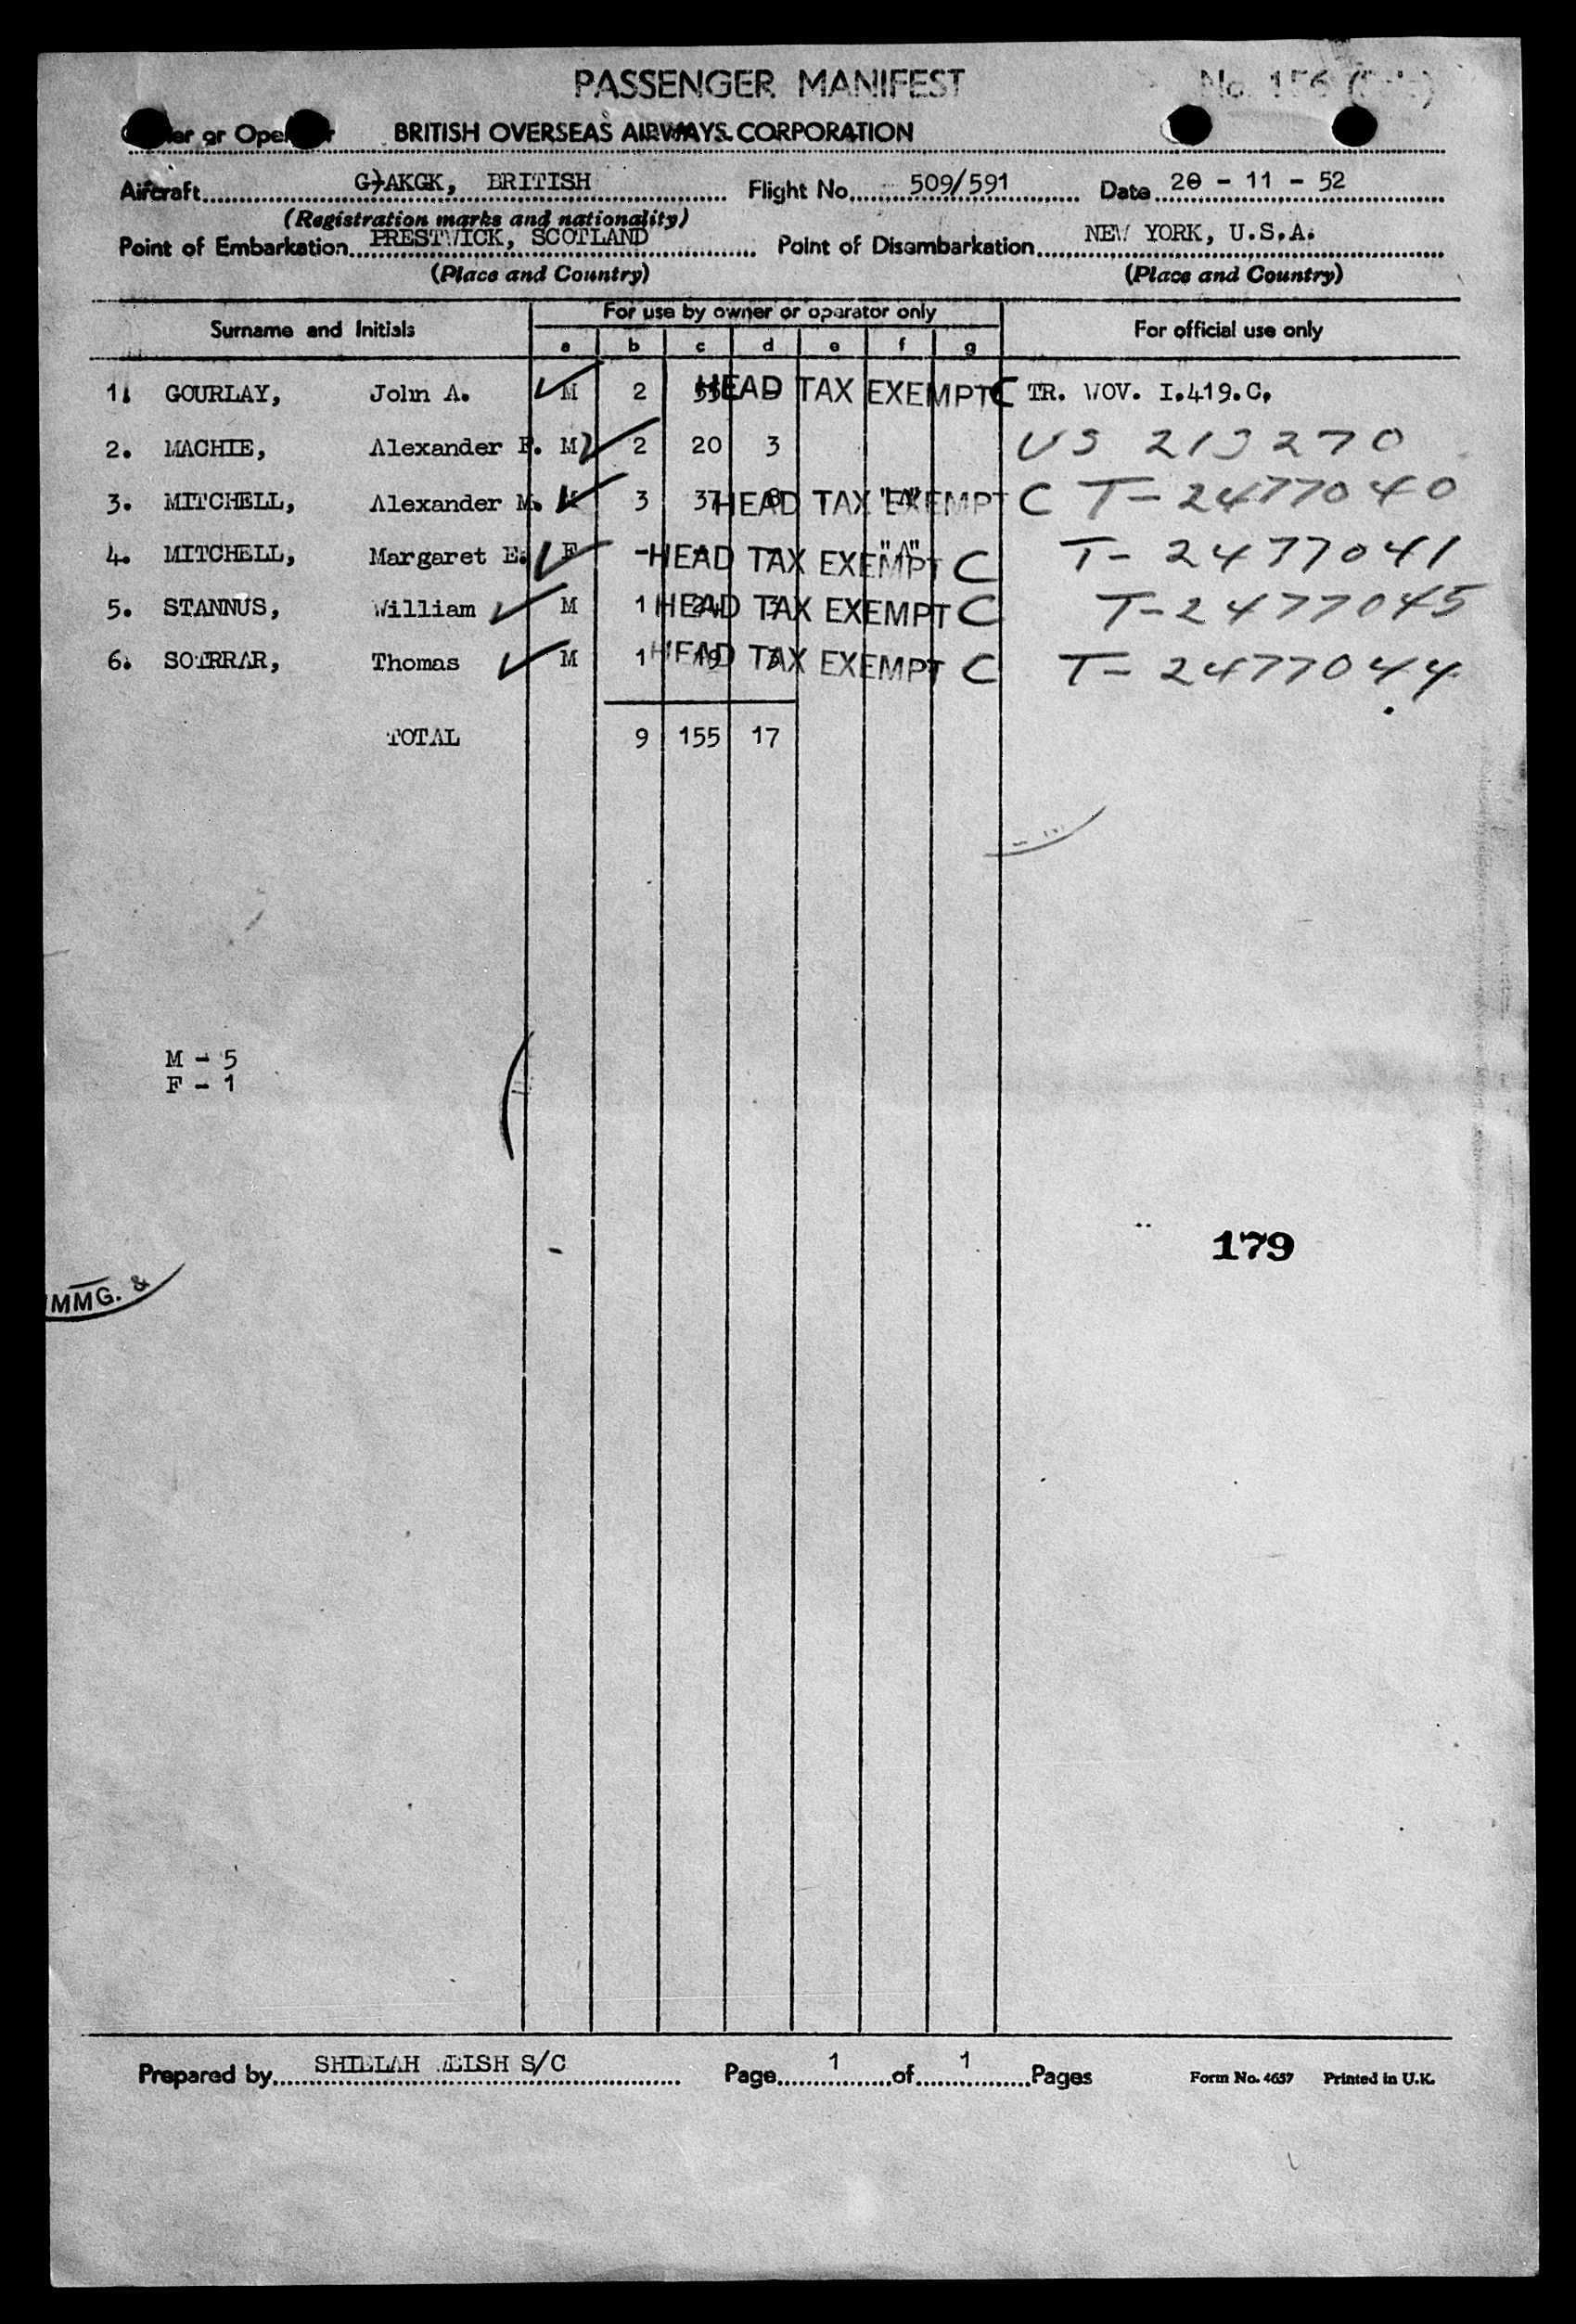 PASSENGER MANIFEST
or Operator BRITISH OVERSEAS AIRWAYS CORPORATION
Aircraft G)AKGK, BRITISH Flight No. 509/591 Date 20 - 11 - 52
(Registration marks and nationality)
Point of Embarkation PRESTWICK, SCOTLAND Point of Disembarkation NEW YORK, U.S.A.
(Place and Country) (Place and Country)
Surname and Initials For use by owner or operator only For official use only
a b c d e f g
1. GOURLAY, John A. M 2 HEAD TAX EXEMPT C TR. WOV. I.419.C.
2. MACHIE, Alexander M 2 20 3 US 213270
3. MITCHELL, Alexander M. 3 37 HEAD TAX EXEMPT C T-2477040
4. MITCHELL, Margaret E. F - HEAD TAX EXEMPT C T-2477041
5. STANNUS, William M 1 HEAD TAX EXEMPT C T-2477045
6. SOTRRAR, Thomas M 1 19 HEAD TAX EXEMPT C T-2477044
TOTAL 9 155 17
M - 5
F - 1
179
IMMG. &
Prepared by SHILLAH S/C Page 1 of 1 Pages Form No. 4637 Printed in U.K.